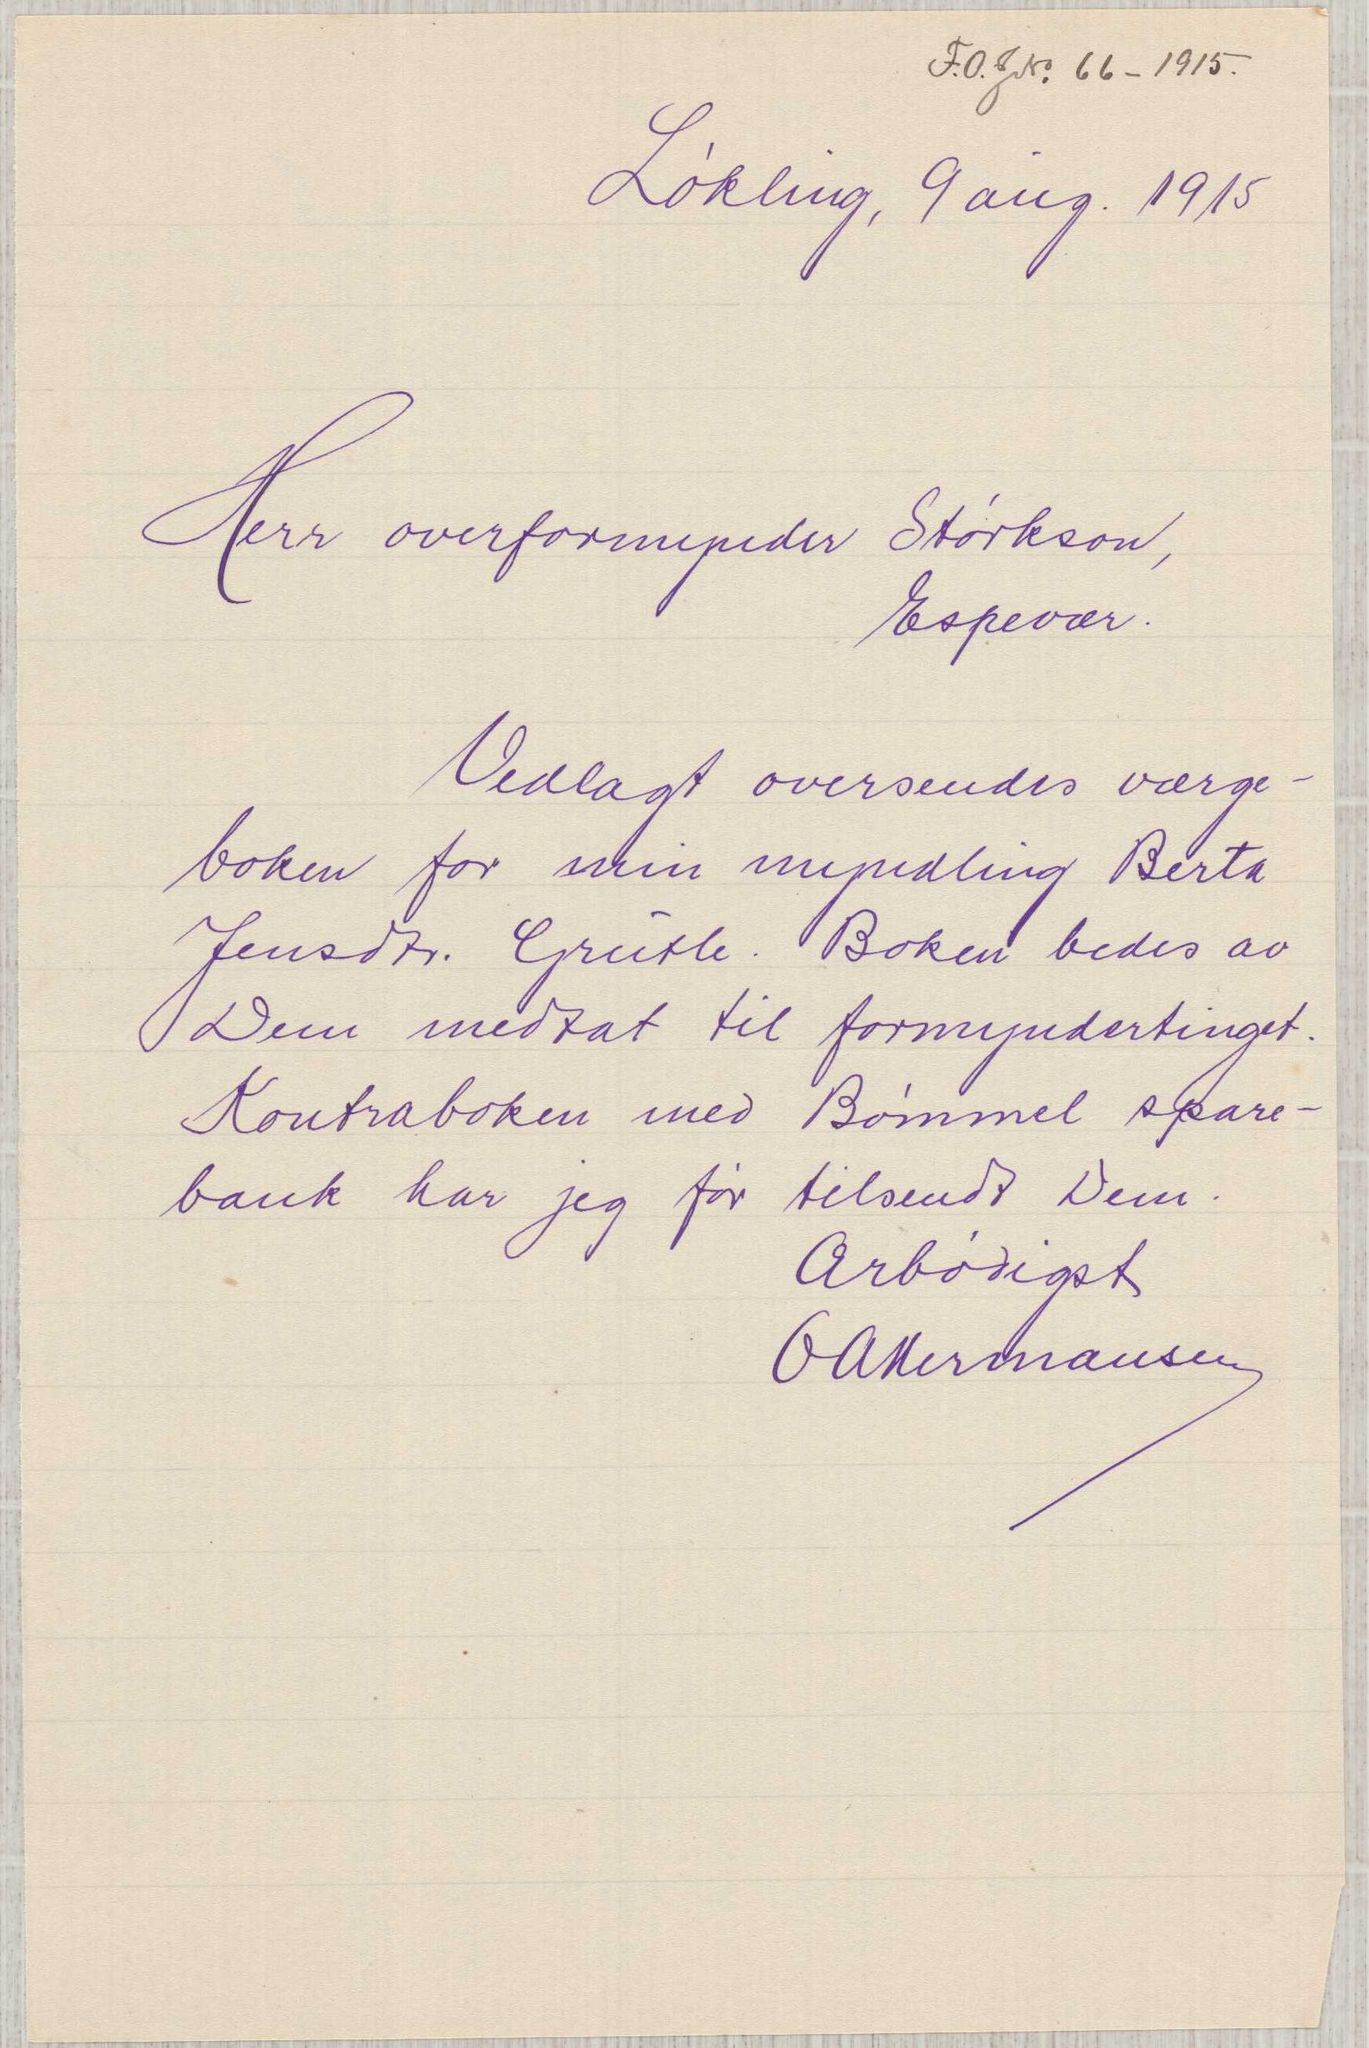 F.O. J.No. 66 – 1915.
Løkling, 9 aug. 1915
Herr overformynder Størkson,
Espevær.
Vedlagt oversendes værge-
boken for min myndling Berta
Jensdtr. Grutle. Boken bedes av
Dem medtat til formyndertinget.
Kontraboken med Bømmel spare-
bank har jeg før tilsendt Dem.
Ærbødigst
O A Hermansen